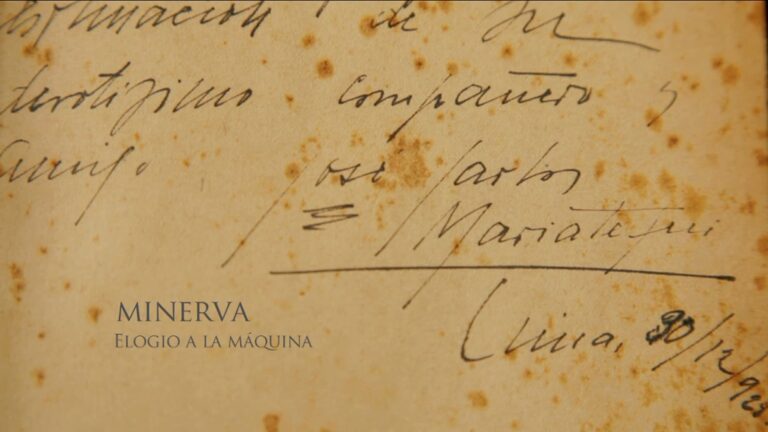 estimación de su
devotísimo compañero y
amigo José Carlos
Mariátegui
Lima, 30/12/925
MINERVA
ELOGIO A LA MÁQUINA